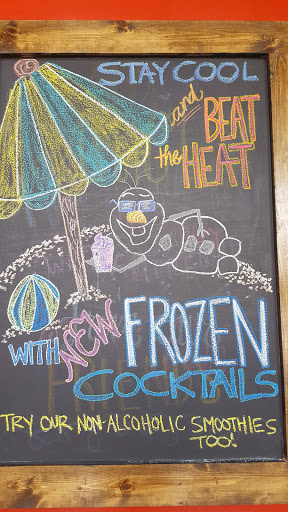 STAY COOL
and BEAT
the HEAT
WITH NEW FROZEN
COCKTAILS
TRY OUR NON-ALCOHOLIC SMOOTHIES
TOO!